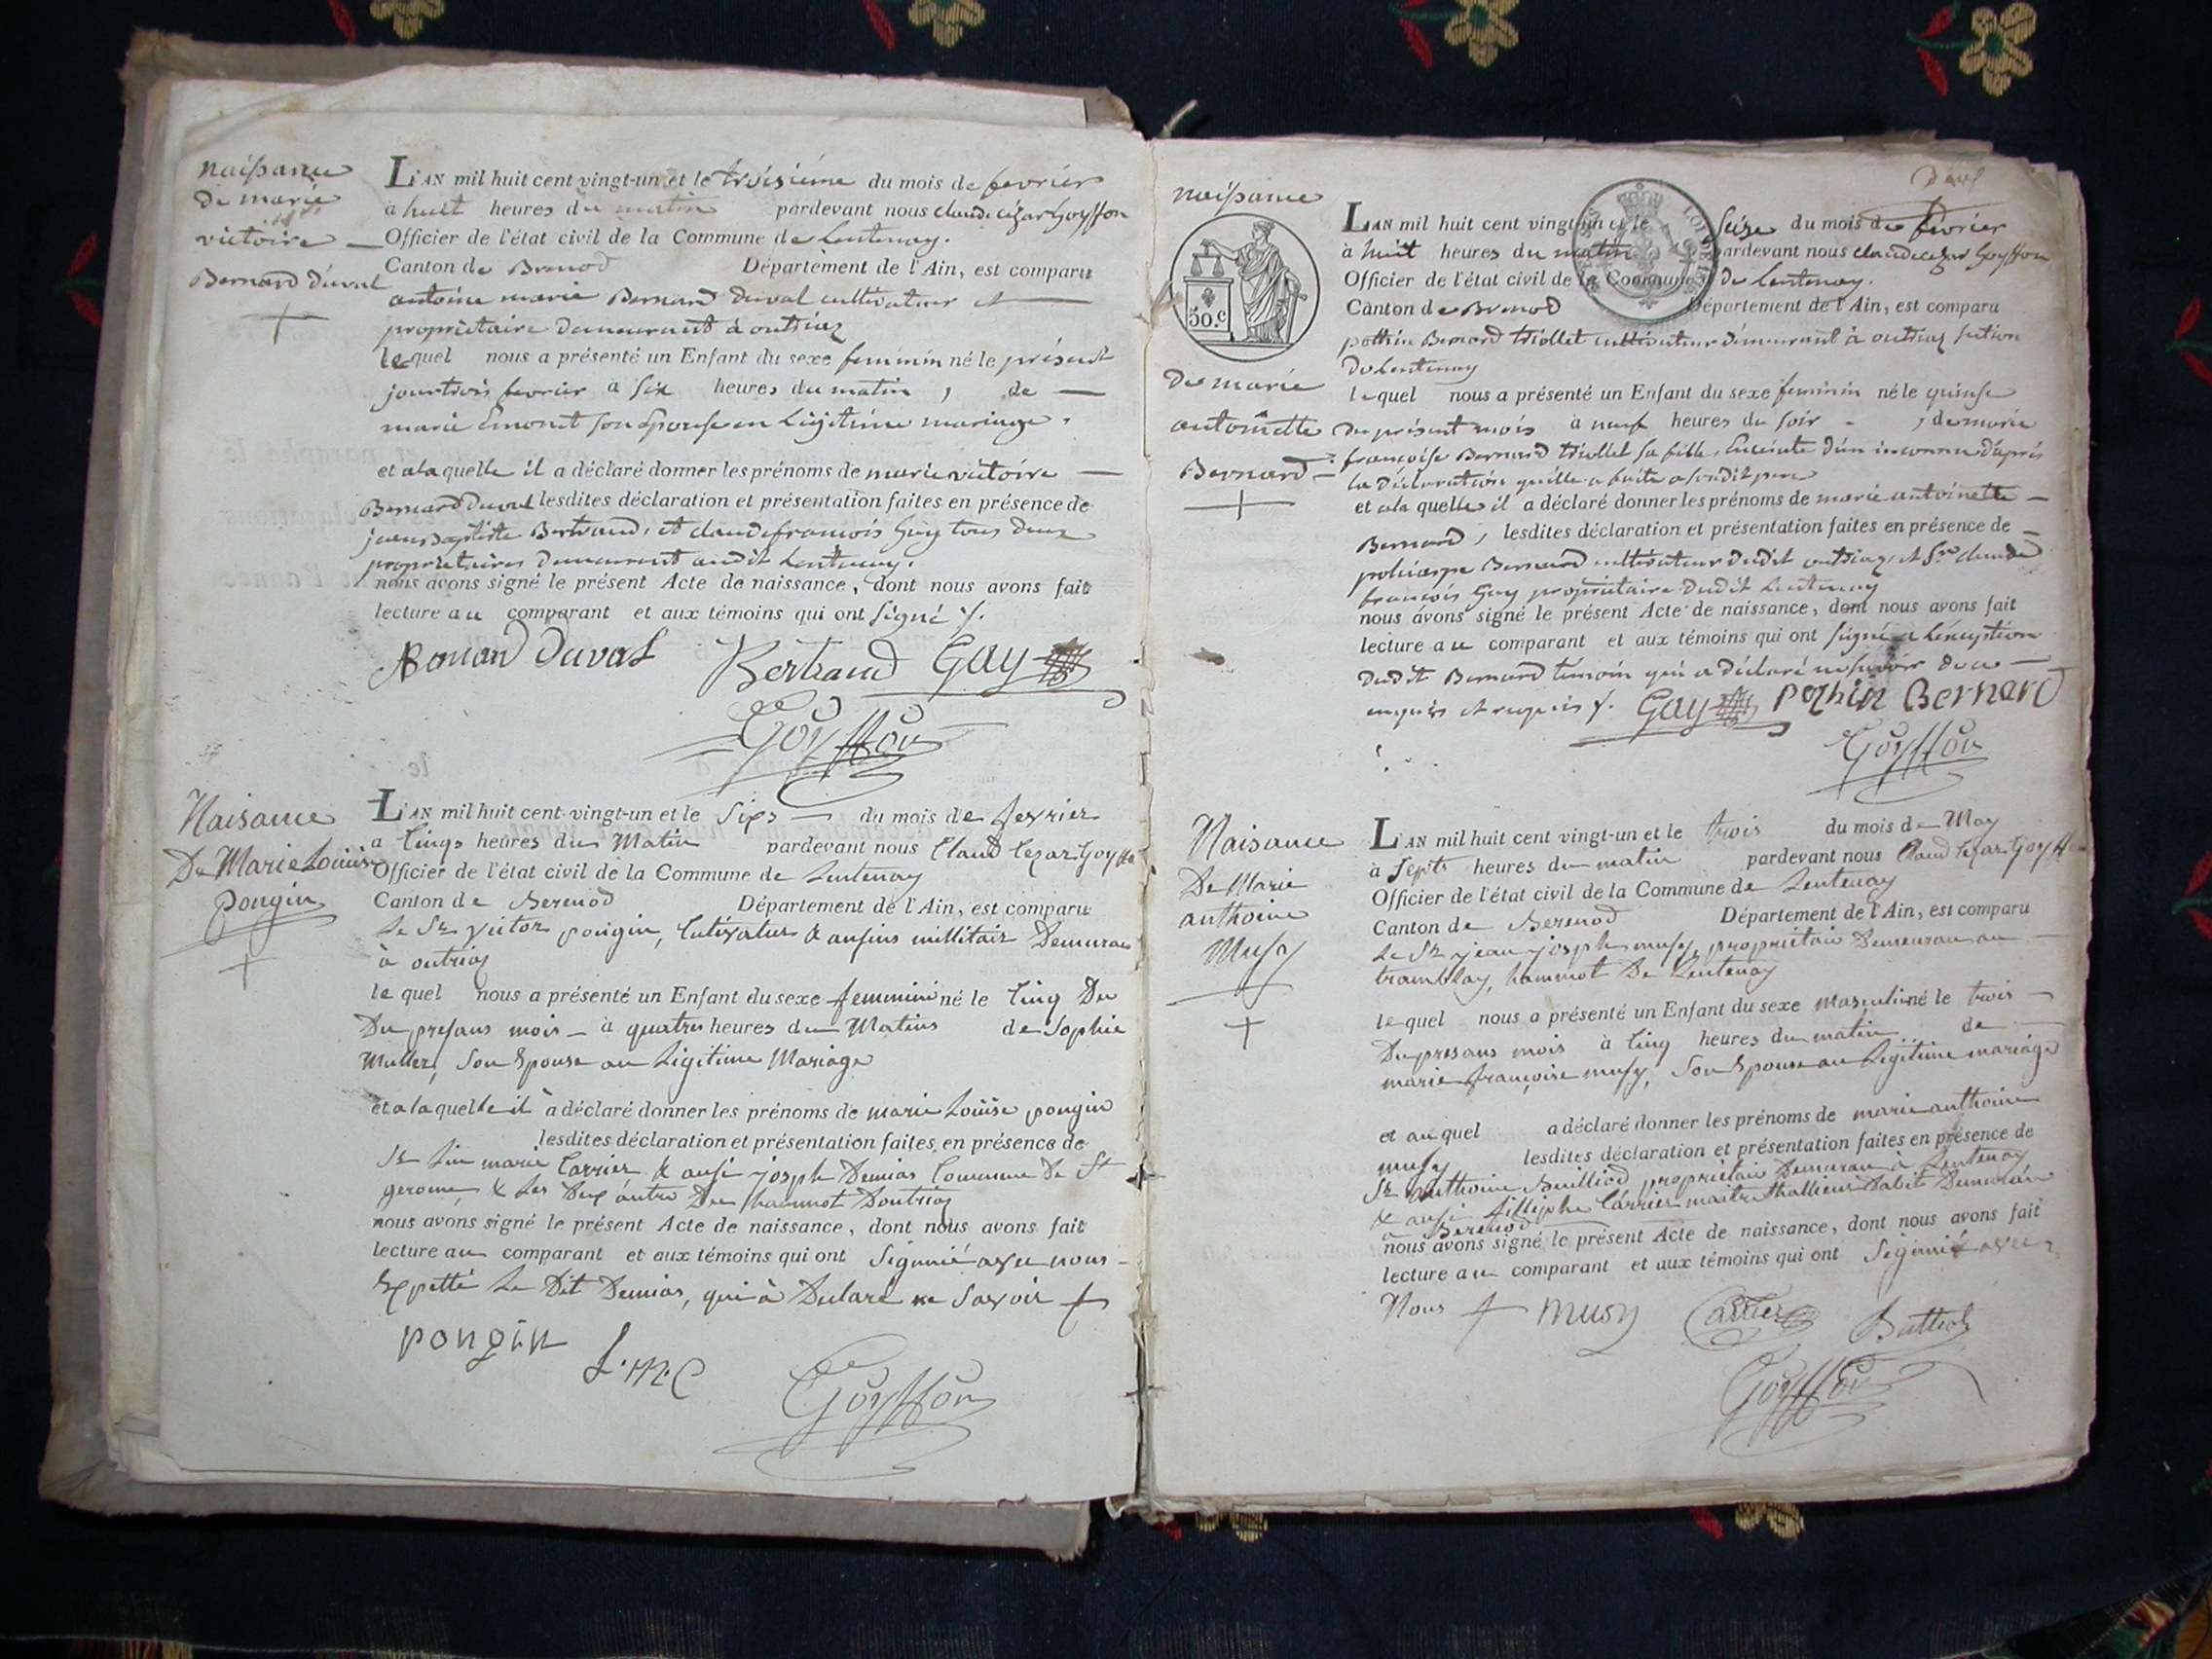 naissance
de marie
victoire
Bernard duval
L'AN mil huit cent vingt-un et le troisième du mois de fevrier
a huit heures du matin pardevant nous claude cézar Goyffon
Officier de l'état civil de la Commune de Lentenay.
Canton de Brenod Département de l'Ain, est comparu
antoine marie Bernard Duval cultivateur et
propriétaire demeurant à outriaz
lequel nous a présenté un Enfant du sexe feminin né le présent
jour trois fevrier a six heures du matin, de
marie Emonet son Epouse en Légitime mariage.
et a laquelle il a déclaré donner les prénoms de marie victoire
Bernard duval lesdites déclaration et présentation faites en présence de
jean Baptiste Bertrand, et claude françois Guy tous deux
propriétaires demeurant audit Lentenay.
nous avons signé le présent Acte de naissance, dont nous avons fait
lecture au comparant et aux témoins qui ont signé
Duval Bertrand Guy
Goyffon
Naisance
De Marie Louiise
Pongin
L'AN mil huit cent vingt-un et le Sixs du mois de fevrier
a Cinqs heures du Matin pardevant nous Claud Cezar Goyffon
Officier de l'état civil de la Commune de Lentenay
Canton de Berenod Département de l'Ain, est comparu
Le Sr victor pongin, Cutivateur & ansiens millitair Demurans
à outriaz
le quel nous a présenté un Enfant du sexe feminin né le Cinq Du
Du presans mois à quatres heures du Matins de Sophie
Muller, Son Epouse an Ligitime Mariage
et a laquelle il a déclaré donner les prénoms de marie Louiise pongin
lesdites déclaration et présentation faites en présence de
Sr marie Carrier & ausi josph Demias Commune De St
gerome, & Les Deux autre Du hammot Doutriaz
nous avons signé le présent Acte de naissance, dont nous avons fait
lecture au comparant et aux témoins qui ont Signnié avec nous
Le Dit Demias, qui à Declaré ne Savoir
pongin L.M.C
Goyffon
naissance
50.c
de marie
antoinette
Bernard
L'AN mil huit cent vingt-un et le seize du mois de fevrier
à huit heures du matin pardevant nous claude cezar Goyffon
Officier de l'état civil de la Commune de Lentenay.
Canton de Brenod Département de l'Ain, est comparu
pothin Bernard triollet cultivateur demeurant à outriaz section
de Lentenay
lequel nous a présenté un Enfant du sexe feminin né le quinse
du présent mois à neuf heures du soir, de marie
françoise Bernard triollet sa fille, Enceinte d'un inconnu d'après
la déclaration quelle a faite a sondit pere
et a la quelle il a déclaré donner les prénoms de marie antoinette
Bernard, lesdites déclaration et présentation faites en présence de
policarpe Bernard cultivateur dudit outriaz, et Sr claude
françois Guy propriétaire dudit Lentenay
nous avons signé le présent Acte de naissance, dont nous avons fait
lecture au comparant et aux témoins qui ont signé a Léxception
dudit Bernard témoin qui a déclaré ne savoir de ce
enquis et requis
Guy Pothin Bernard
Goyffon
Naisance
De Marie
anthoine
Musy
L'AN mil huit cent vingt-un et le trois du mois de May
à Septs heures du matin pardevant nous Claud Cezar Goyffon
Officier de l'état civil de la Commune de Lentenay
Canton de Berenod Département de l'Ain, est comparu
Le Sr jean josph musy, propriétair Demeuran au
tramblay, hammot De Lentenay
lequel nous a présenté un Enfant du sexe masculin né le trois
Du presans mois à Cinq heures du matin de
marie françoise musy, Son Epouse an Legitime mariage
et auquel a déclaré donner les prénoms de marie anthoine
musy lesdites déclaration et présentation faites en présence de
Sr anthoine propriétair Demeuran à Lentenay
& ausi Carrier maitre Demuran
a Berenod
nous avons signé le présent Acte de naissance, dont nous avons fait
lecture au comparant et aux témoins qui ont Signnié avec
Nous musy Carrier
Goyffon